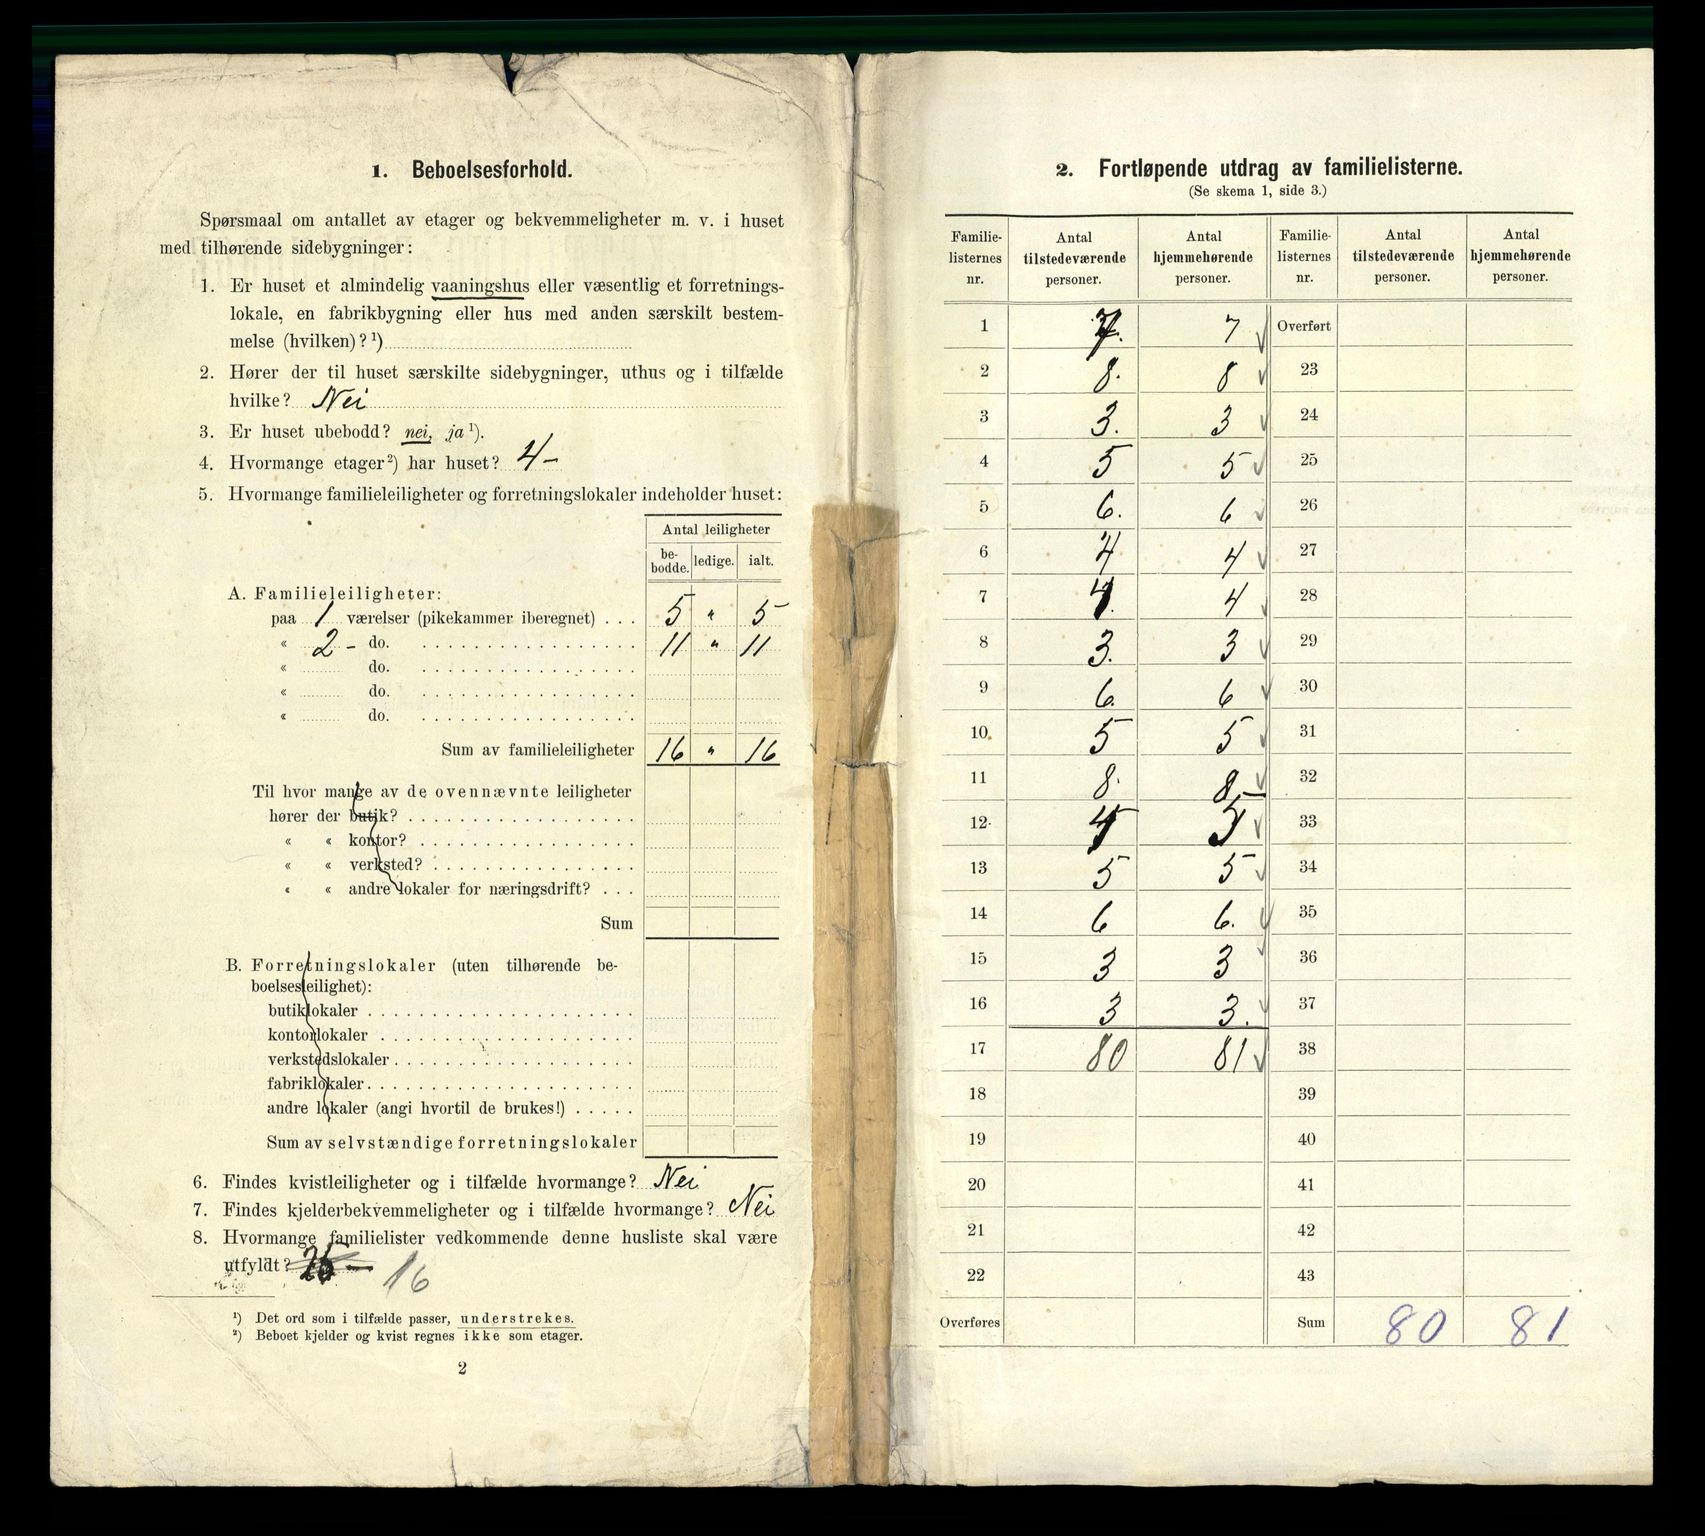 1. Beboelsesforhold.
Spørsmaal om antallet av etager og bekvemmeligheter m. v. i huset
med tilhørende sidebygninger:
1. Er huset et almindelig vaaningshus eller væsentlig et forretnings-
lokale, en fabrikbygning eller hus med anden særskilt bestem-
melse (hvilken)?¹)
2. Hører der til huset særskilte sidebygninger, uthus og i tilfælde
hvilke? Nei
3. Er huset ubebodd? nei, ja¹).
4. Hvormange etager²) har huset? 4-
5. Hvormange familieleiligheter og forretningslokaler indeholder huset:
Antal leiligheter
be-bodde. ledige. ialt.
A. Familieleiligheter:
paa 1 værelser (pikekammer iberegnet) . . . 5 " 5
« 2- do. 11 " 11
« do.
« do.
« do.
Sum av familieleiligheter 16 " 16
Til hvor mange av de ovennævnte leiligheter
hører der butik?
« « kontor?
« « verksted?
« « andre lokaler for næringsdrift? . . .
Sum
B. Forretningslokaler (uten tilhørende be-
boelsesleilighet):
butiklokaler
kontorlokaler
verkstedslokaler
fabriklokaler
andre lokaler (angi hvortil de brukes!)
Sum av selvstændige forretningslokaler
6. Findes kvistleiligheter og i tilfælde hvormange? Nei
7. Findes kjelderbekvemmeligheter og i tilfælde hvormange? Nei
8. Hvormange familielister vedkommende denne husliste skal være
utfyldt? 16
¹) Det ord som i tilfælde passer, understrekes.
²) Beboet kjelder og kvist regnes ikke som etager.
2
2. Fortløpende utdrag av familielisterne.
(Se skema 1, side 3.)
Familie-listernes nr. Antal tilstedeværende personer. Antal hjemmehørende personer. Familie-listernes nr. Antal tilstedeværende personer. Antal hjemmehørende personer.
1 7. 7 Overført
2 8. 8 23
3 3. 3 24
4 5 5 25
5 6. 6 26
6 4 4 27
7 4. 4 28
8 3. 3 29
9 6. 6 30
10. 5 5 31
11 8. 8 32
12 4 5 33
13 5 5 34
14 6 6. 35
15 3 3 36
16 3 3. 37
17 80 81 38
18 39
19 40
20 41
21 42
22 43
Overføres Sum 80 81